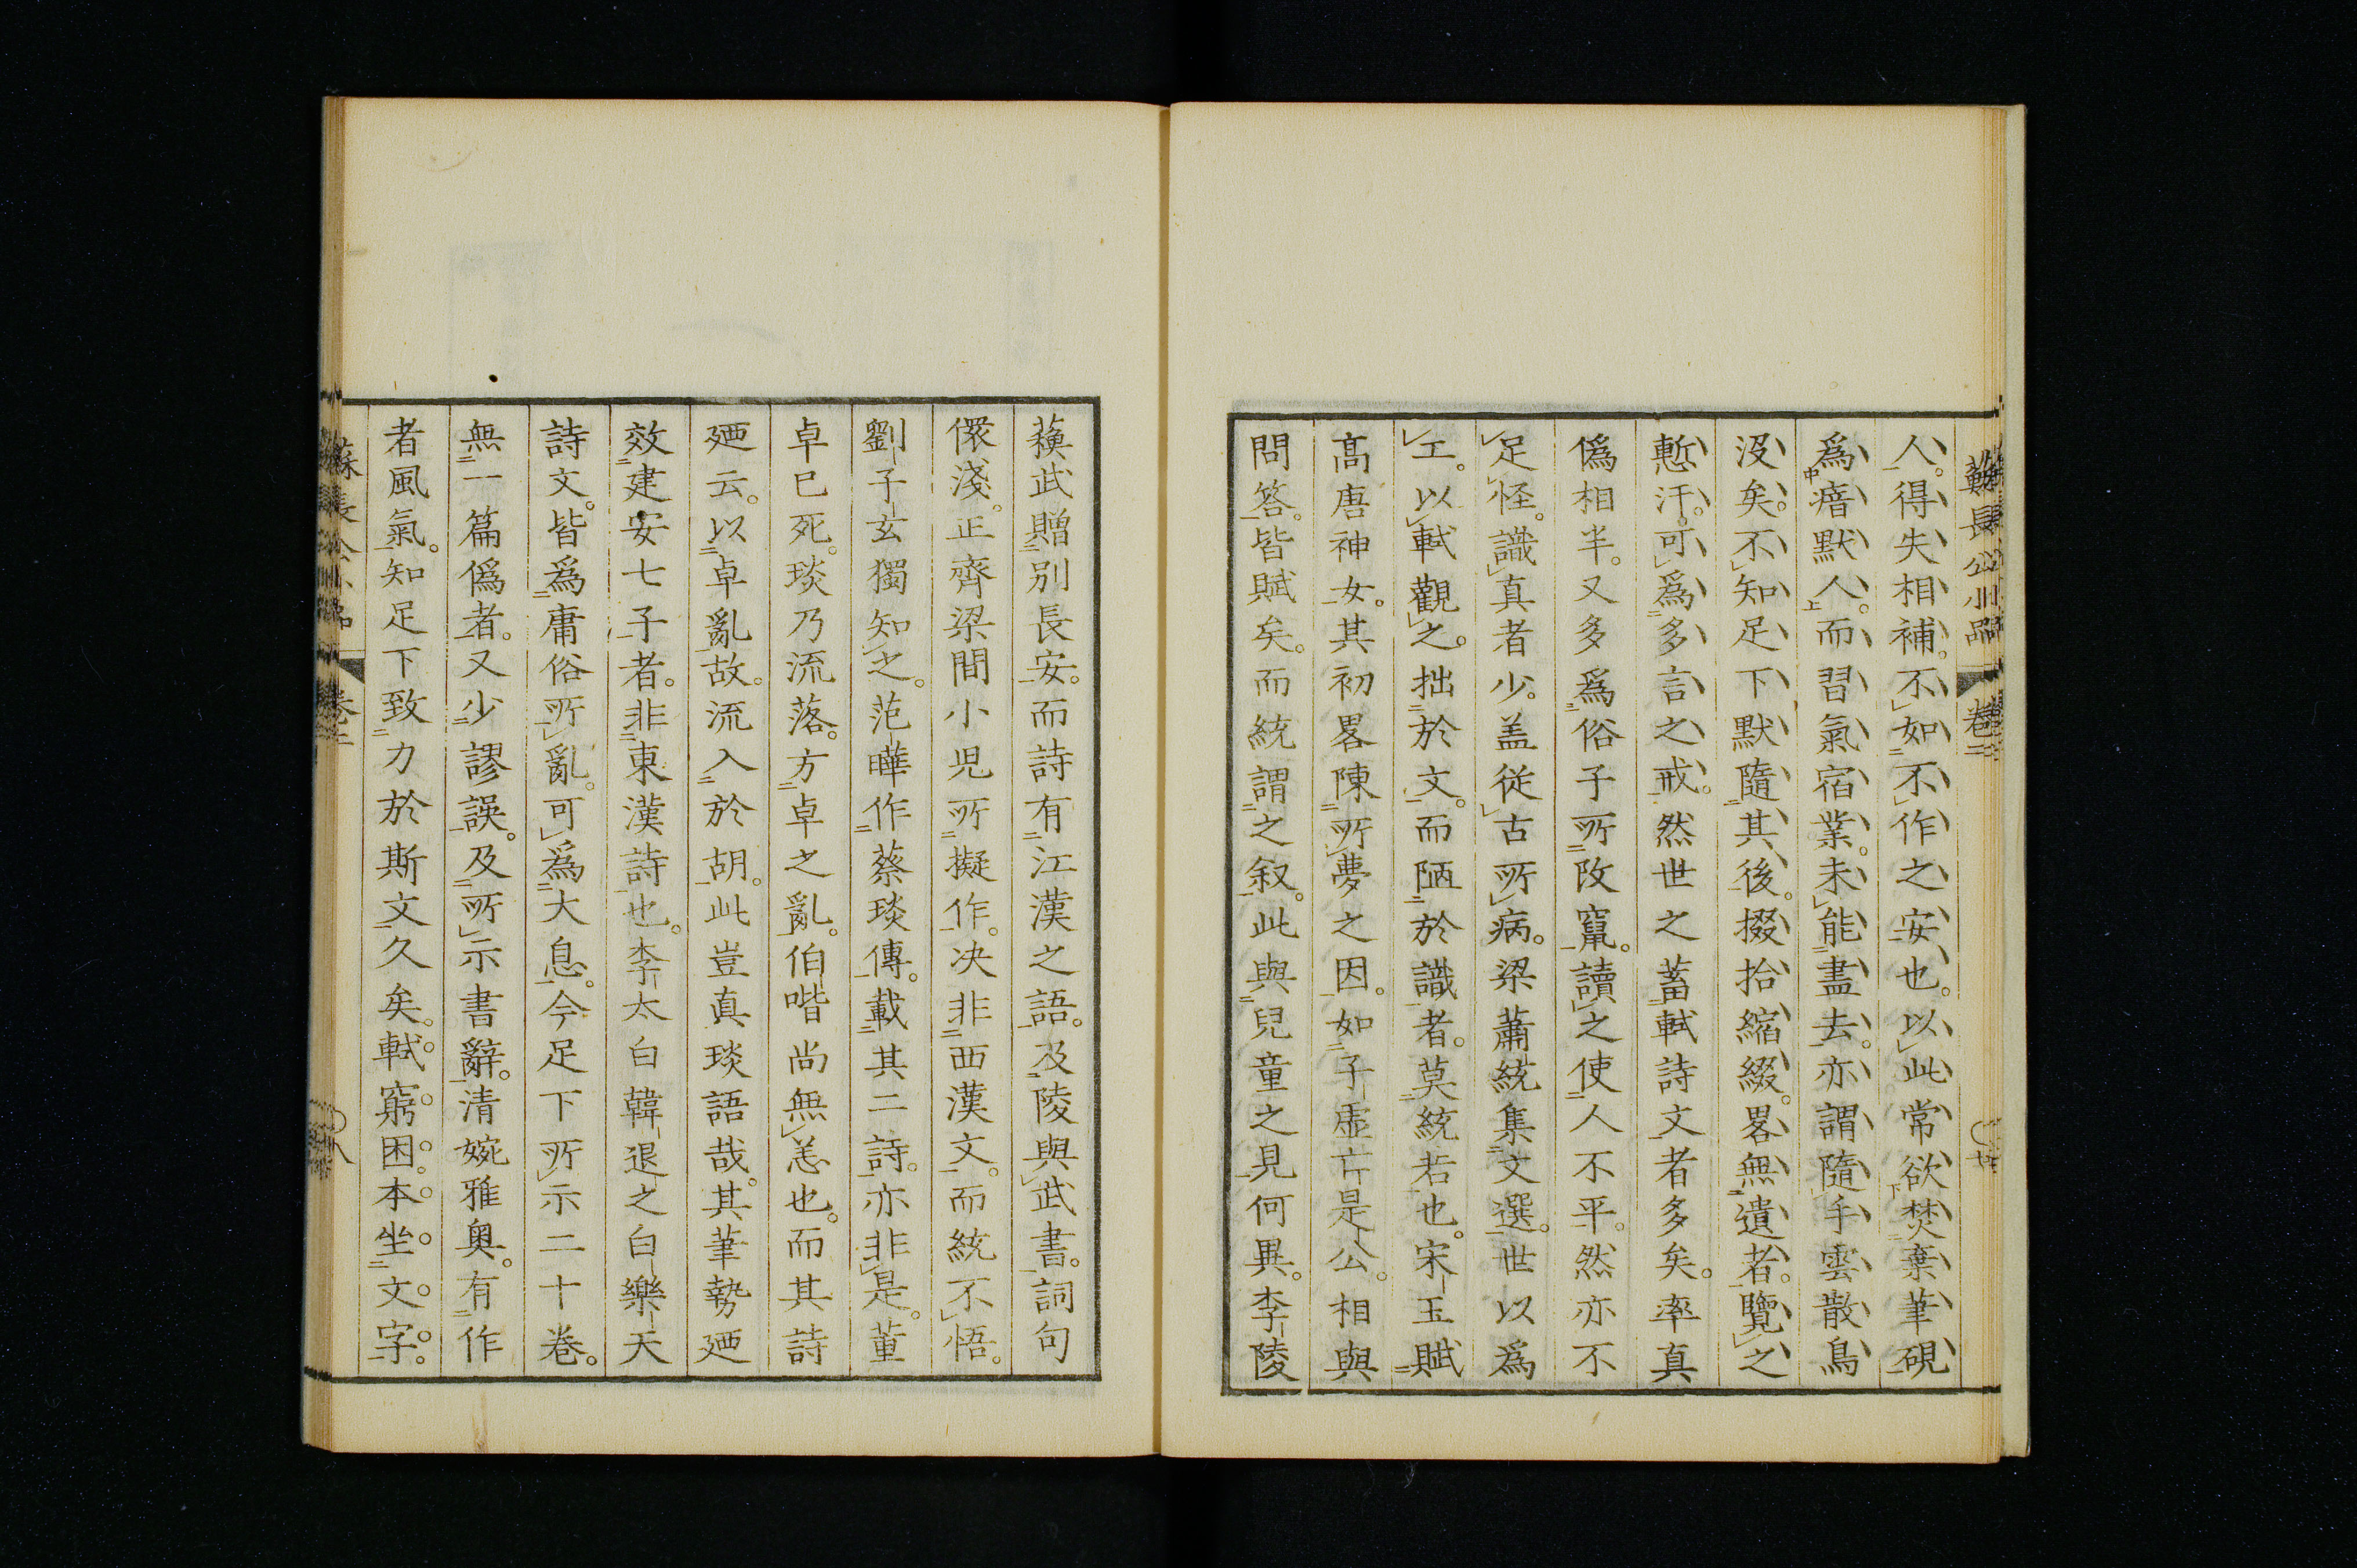 蘇長公小品 卷二
人。得失相補。不如不作之安也。以此常欲焚棄筆硯
爲瘖默人。而習氣宿業。未能盡去。亦謂隨手雲散鳥
沒矣。不知足下默隨其後。掇拾縮綴。畧無遺者。覽之
慙汗。可爲多言之戒。然世之蓄軾詩文者多矣。率真
僞相半。又多爲俗子所改竄。讀之使人不平。然亦不
足怪。識真者少。盖從古所病。梁蕭統集文選。世以爲
工。以軾觀之。拙於文。而陋於識者。莫統若也。宋玉賦
高唐神女。其初畧陳所夢之因。如子虛亡是公。相與
問答。皆賦矣。而統謂之叙。此與兒童之見何異。李陵
蘇武贈別長安。而詩有江漢之語。及陵與武書。詞句
儇淺。正齊梁間小児所擬作。决非西漢文。而統不悟。
劉子玄獨知之。范曄作蔡琰傳。載其二詩。亦非是。董
卓已死。琰乃流落。方卓之亂。伯喈尚無恙也。而其詩
廼云。以卓亂故。流入於胡。此豈真琰語哉。其筆勢廼
效建安七子者。非東漢詩也。李太白韓退之白樂天
詩文。皆爲庸俗所亂。可爲大息。今足下所示二十卷。
無一篇僞者。又少謬誤。及所示書辭。清婉雅奧。有作
者風氣。知足下致力於斯文久矣。軾。窮。困。本。坐。文。字。
蘇長公小品 卷二 八